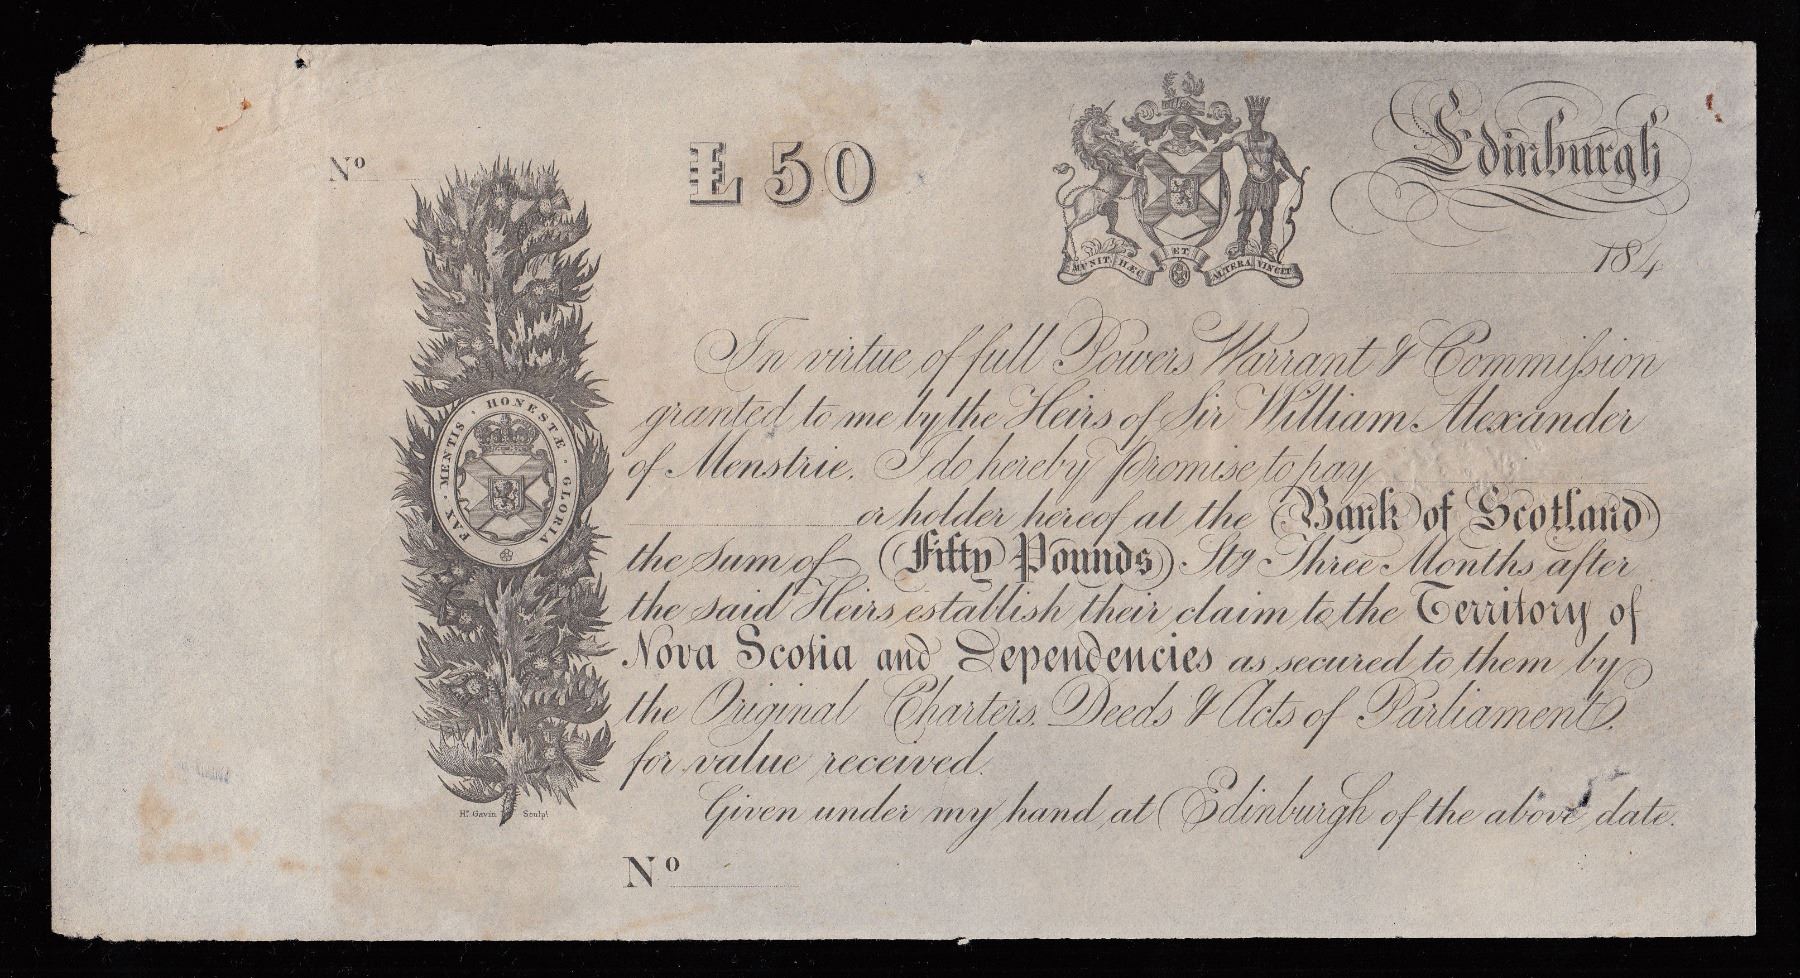 Nº
£50
MUNIT HÆC ET ALTERA VINCIT
Edinburgh
184
FAX · MENTIS · HONESTÆ · GLORIA
In virtue of full Powers Warrant & Commiſsion
granted to me by the Heirs of Sir William Alexander
of Menstrie. I do hereby promise to pay
or holder hereof at the Bank of Scotland
the Sum of (Fifty Pounds) Stg Three Months after
the said Heirs establish their claim to the Territory of
Nova Scotia and Dependencies as secured to them by
the Original Charters, Deeds & Acts of Parliament.
for value received.
Given under my hand at Edinburgh of the above date.
Hr. Gavin Sculpt
Nº